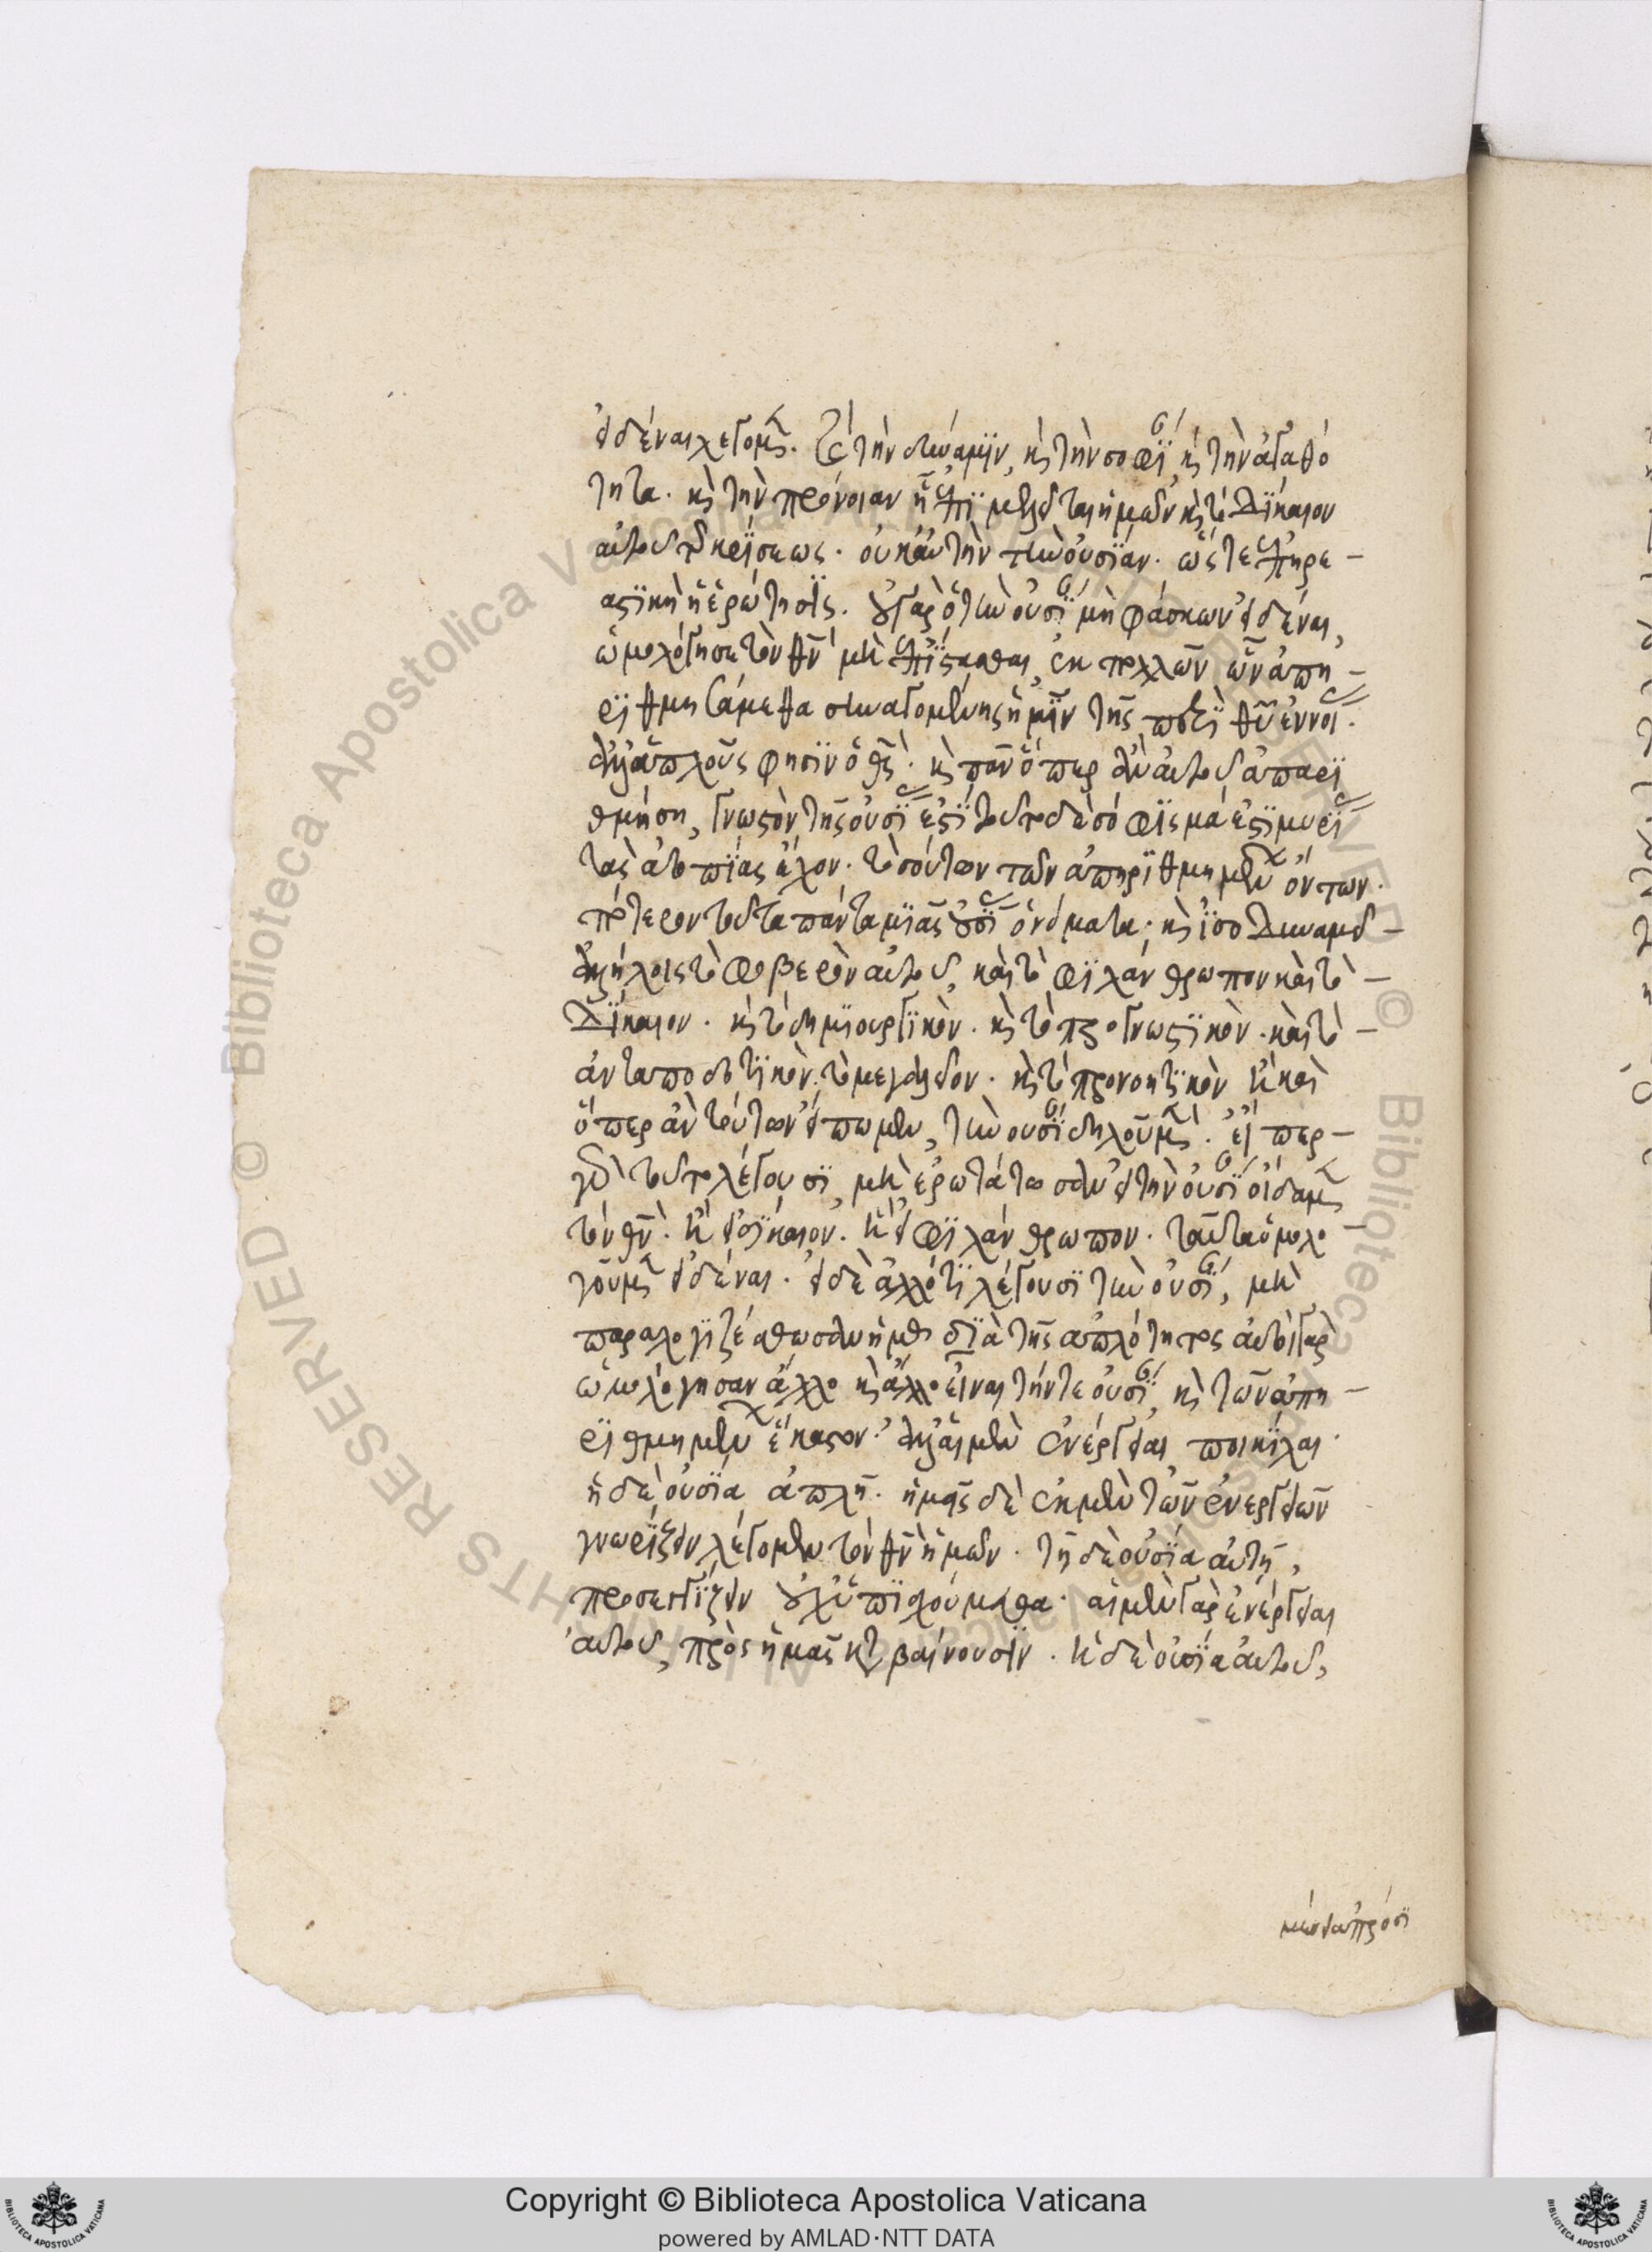 εἰδέναι λέγομεν. καὶ τὴν δύναμιν, καὶ τὴν σοφίαν καὶ τὴν ἀγαθό
τητα. καὶ τὴν πρόνοιαν ᾗ ἐπιμελεῖται ἡμῶν καὶ τὸ δίκαιον
αὐτοῦ τῆς κρίσεως. οὐκ αὐτὴν τὴν οὐσίαν. ὥστε ἐπηρε-
αστικὴ ἡ ἐρώτησις. οὐ γὰρ ὁ τὴν οὐσίαν μὴ φάσκων εἰδέναι,
ὡμολόγησε τὸν θν μὴ ἐπίστασθαι, ἐκ πολλῶν ὧν ἀπη-
ριθμησάμεθα συναγομένης ἡμῖν τῆς περὶ θυ ἐννοίας.
ἀλλ' ἁπλοῦς φησὶν ὁ θς. καὶ πᾶν ὅπερ ἂν αὐτοῦ ἀπαρι
θμήση, γνωστὸν τῆς οὐσίας ἐστί τοῦτο δὲ σόφισμά ἐστι μυρί
τὰς ἀτοπίας ἔχον. τοσούτων τῶν ἀπηριθμημένων ὄντων.
πότερον ταῦτα πάντα μιᾶς οὐσίας ὀνόματα· καὶ ἰσοδυναμεῖ-
ἀλλήλοις τὸ φοβερὸν αὐτοῦ, καὶ τὸ φιλάνθρωπον καὶ τὸ-
δίκαιον. καὶ τὸ δημιουργικὸν. καὶ τὸ προγνωστικὸν. καὶ τὸ-
ἀνταποδοτικὸν. τὸ μεγαλεῖον. καὶ τὸ προνοητικὸν ἢ καὶ
ὅπερ ἂν τούτων εἴπωμεν, τὴν οὐσίαν δηλοῦμεν. εἰ περ-
γὰρ τοῦτο λέγουσι, μὴ ἐρωτάτωσαν εἰ τὴν οὐσίαν οἴδαμεν
τὸν θν. ἢ εἰ δίκαιον. ἢ εἰ φιλάνθρωπον. ταῦτα ὁμολο-
γοῦμεν εἰδέναι. εἰ δὲ ἄλλό τι λέγουσι τὴν οὐσίαν, μὴ
παραλογιζέσθωσαν ἡμᾶς διὰ τῆς ἁπλότητος αὐτοὶ γὰρ
ὡμολόγησαν ἄλλο καὶ ἄλλο εἶναι τήν τε οὐσίαν, καὶ τῶν ἀπη-
ριθμημένων ἕκαστον. ἀλλ' αἱ μὲν ἐνέργειαι ποικίλαι.
ἡ δὲ οὐσία ἁπλῆ. ἡμεῖς δὲ ἐκ μὲν τῶν ἐνεργειῶν
γνωρίζειν λέγομεν τὸν θν ἡμῶν. τῆ δὲ οὐσία αὐτῆ,
προσεγγίζειν οὐχ ὑπισχούμεθα. αἱ μὲν γὰρ ἐνέργειαι
αὐτοῦ, πρὸς ἡμᾶς καταβαίνουσιν. ἡ δὲ οὐσία αὐτοῦ,
μένει ἀπρόσι
Copyright © Biblioteca Apostolica Vaticana
powered by AMLAD·NTT DATA